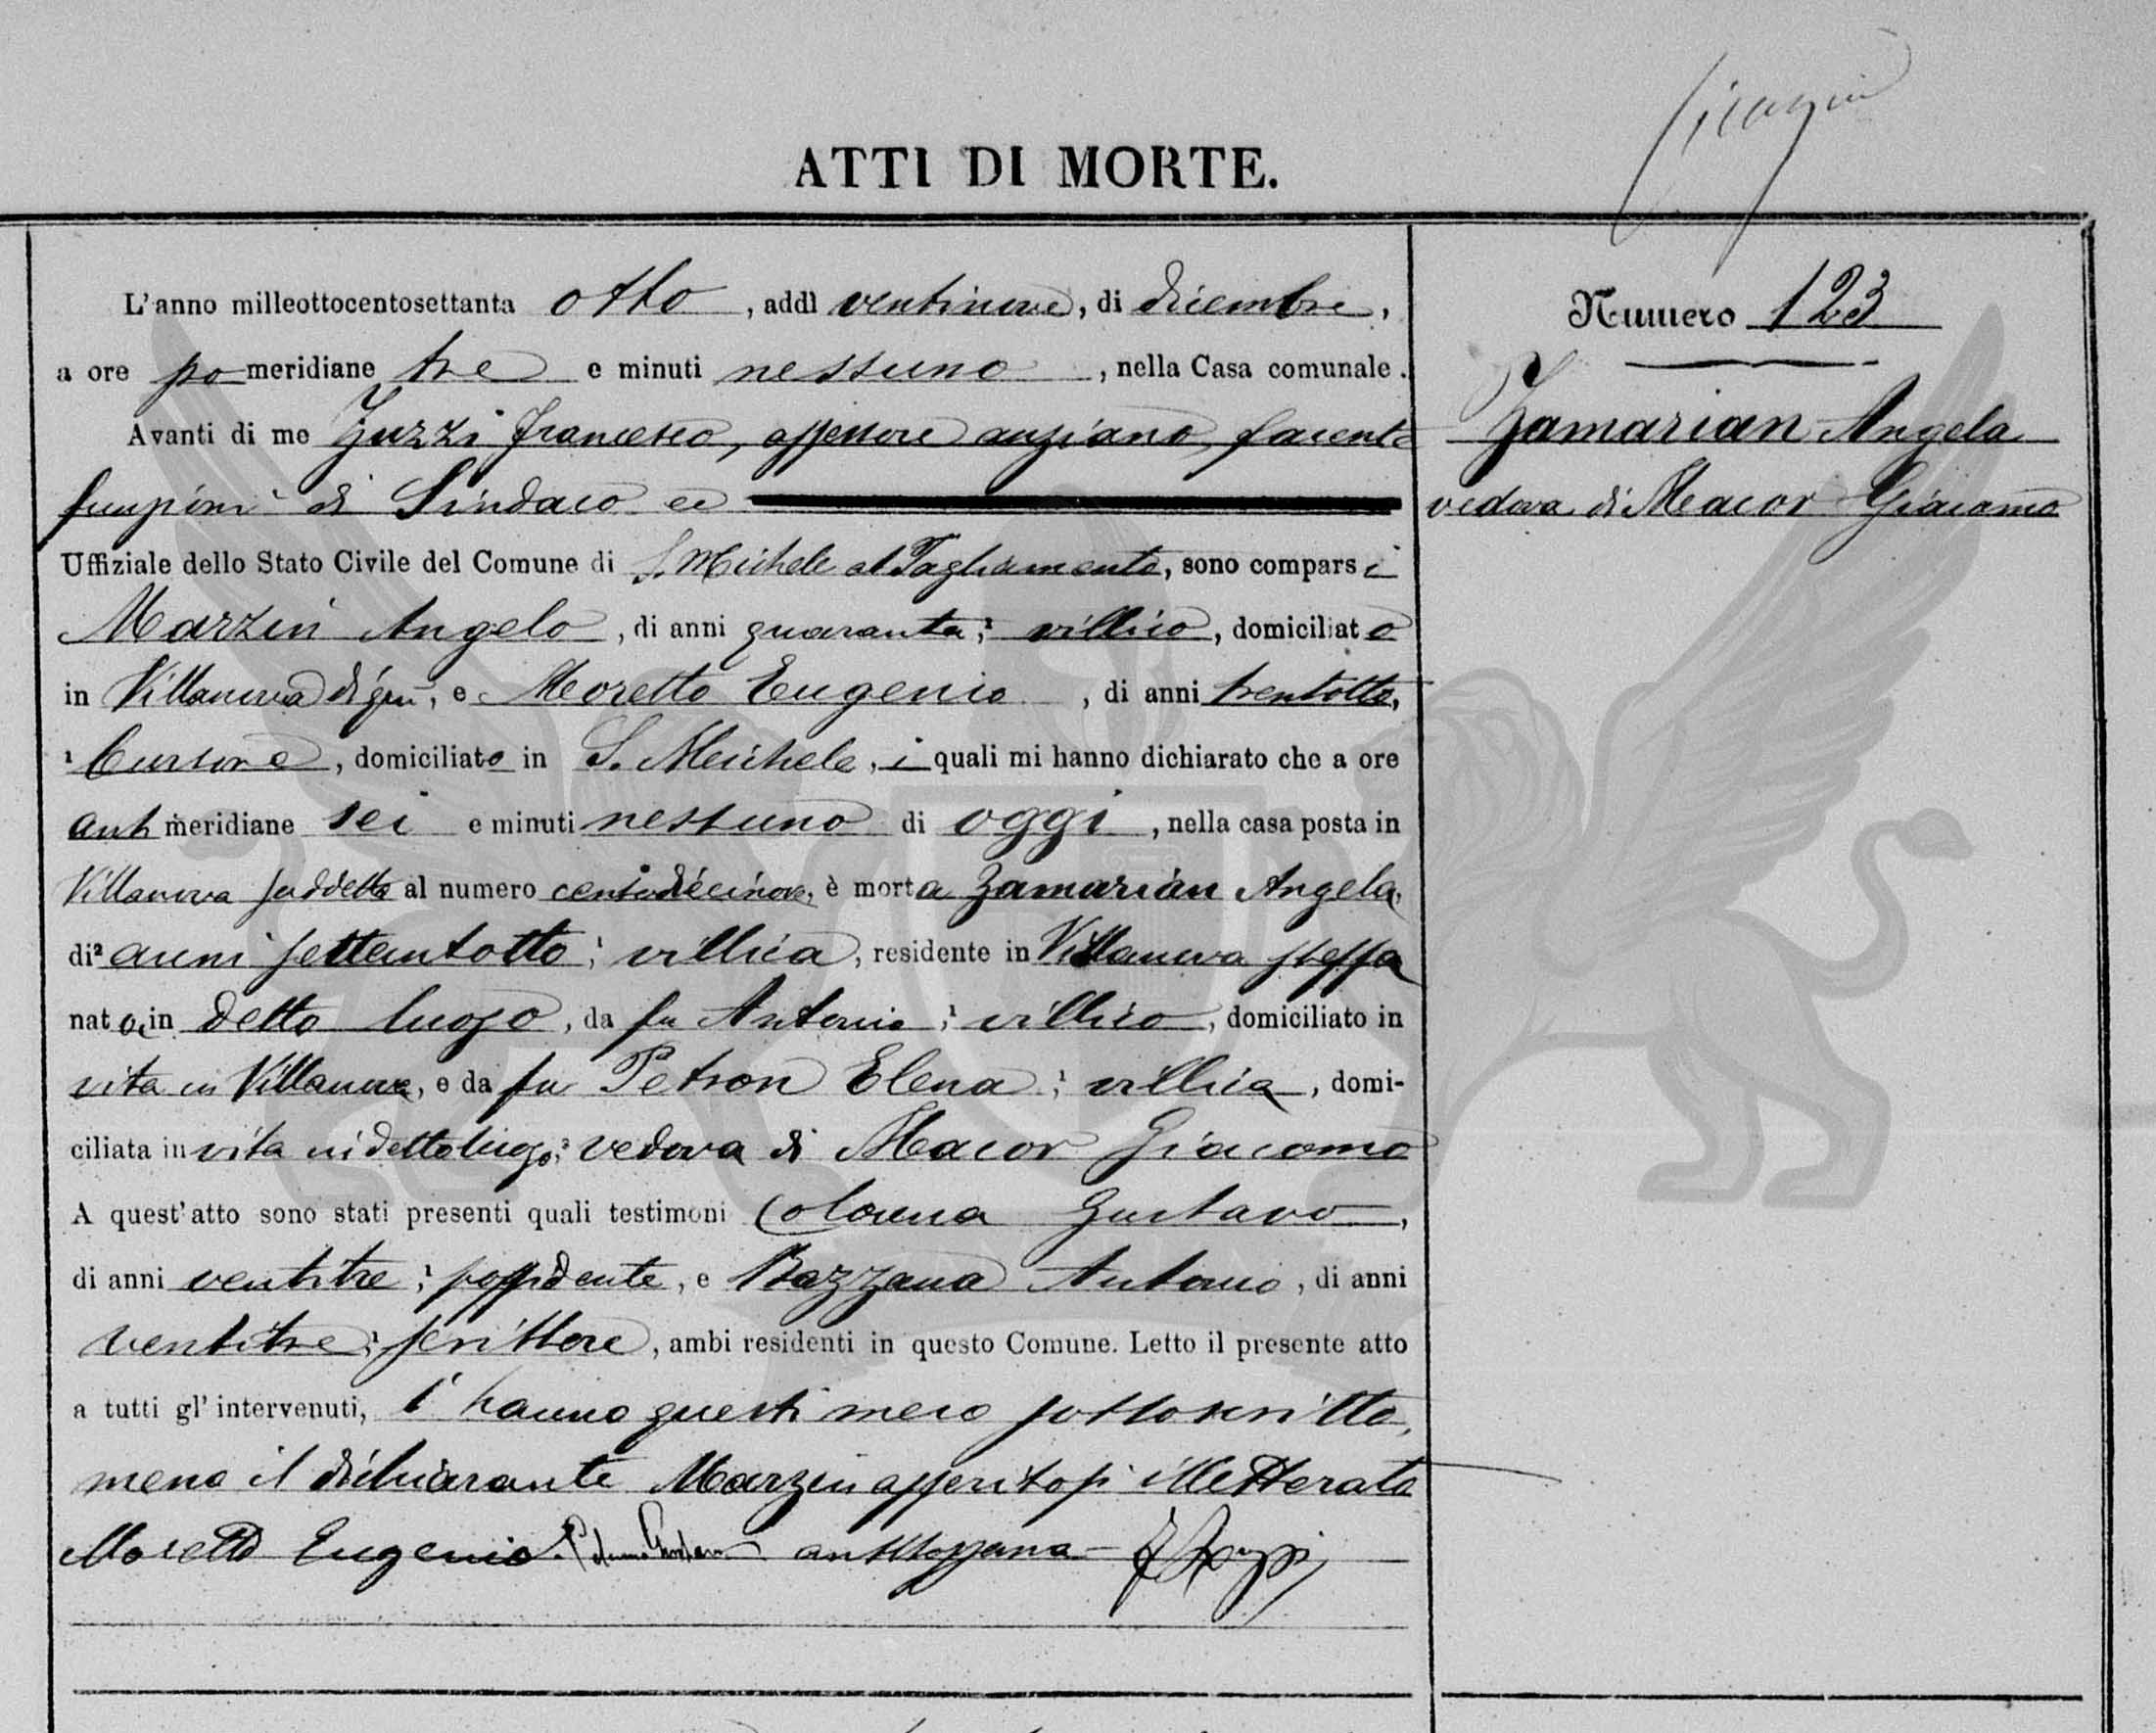 ATTI DI MORTE.
L'anno milleottocentosettanta otto, addì ventinove, di dicembre,
a ore pomeridiane tre e minuti nessuno, nella Casa comunale.
Avanti di me Zuzzi Francesco, assessore anziano, facente
funzioni di Sindaco ec
Uffiziale dello Stato Civile del Comune di S. Michele al Tagliamento, sono comparsi
Marzin Angelo, di anni quaranta; villico, domiciliato
in Villanova di qui, e Moretto Eugenio, di anni trentotto,
Cursore, domiciliato in S. Michele, i quali mi hanno dichiarato che a ore
antimeridiane sei e minuti nessuno di oggi, nella casa posta in
Villanova suddetta al numero centodicinove, è morta Zamarian Angela,
di anni settantotto; villica, residente in Villanova stessa
nata in detto luogo, da fu Antonio; villico, domiciliato in
vita in Villanova, e da fu Petron Elena; villica, domi-
ciliata in vita in detto luogo; vedova di Macor Giacomo
A quest'atto sono stati presenti quali testimoni Colonna Gustavo,
di anni ventitre; possidente, e Bazzana Antonio, di anni
ventitre; scrittore, ambi residenti in questo Comune. Letto il presente atto
a tutti gl'intervenuti, l'hanno questi meco sottoscritto,
meno il dichiarante Marzin assertosi illetterato
Moretto Eugenio. Colonna Gustavo Ant Bazzana F Zuzzi
Numero 123
Zamarian Angela
vedova di Macor Giacomo